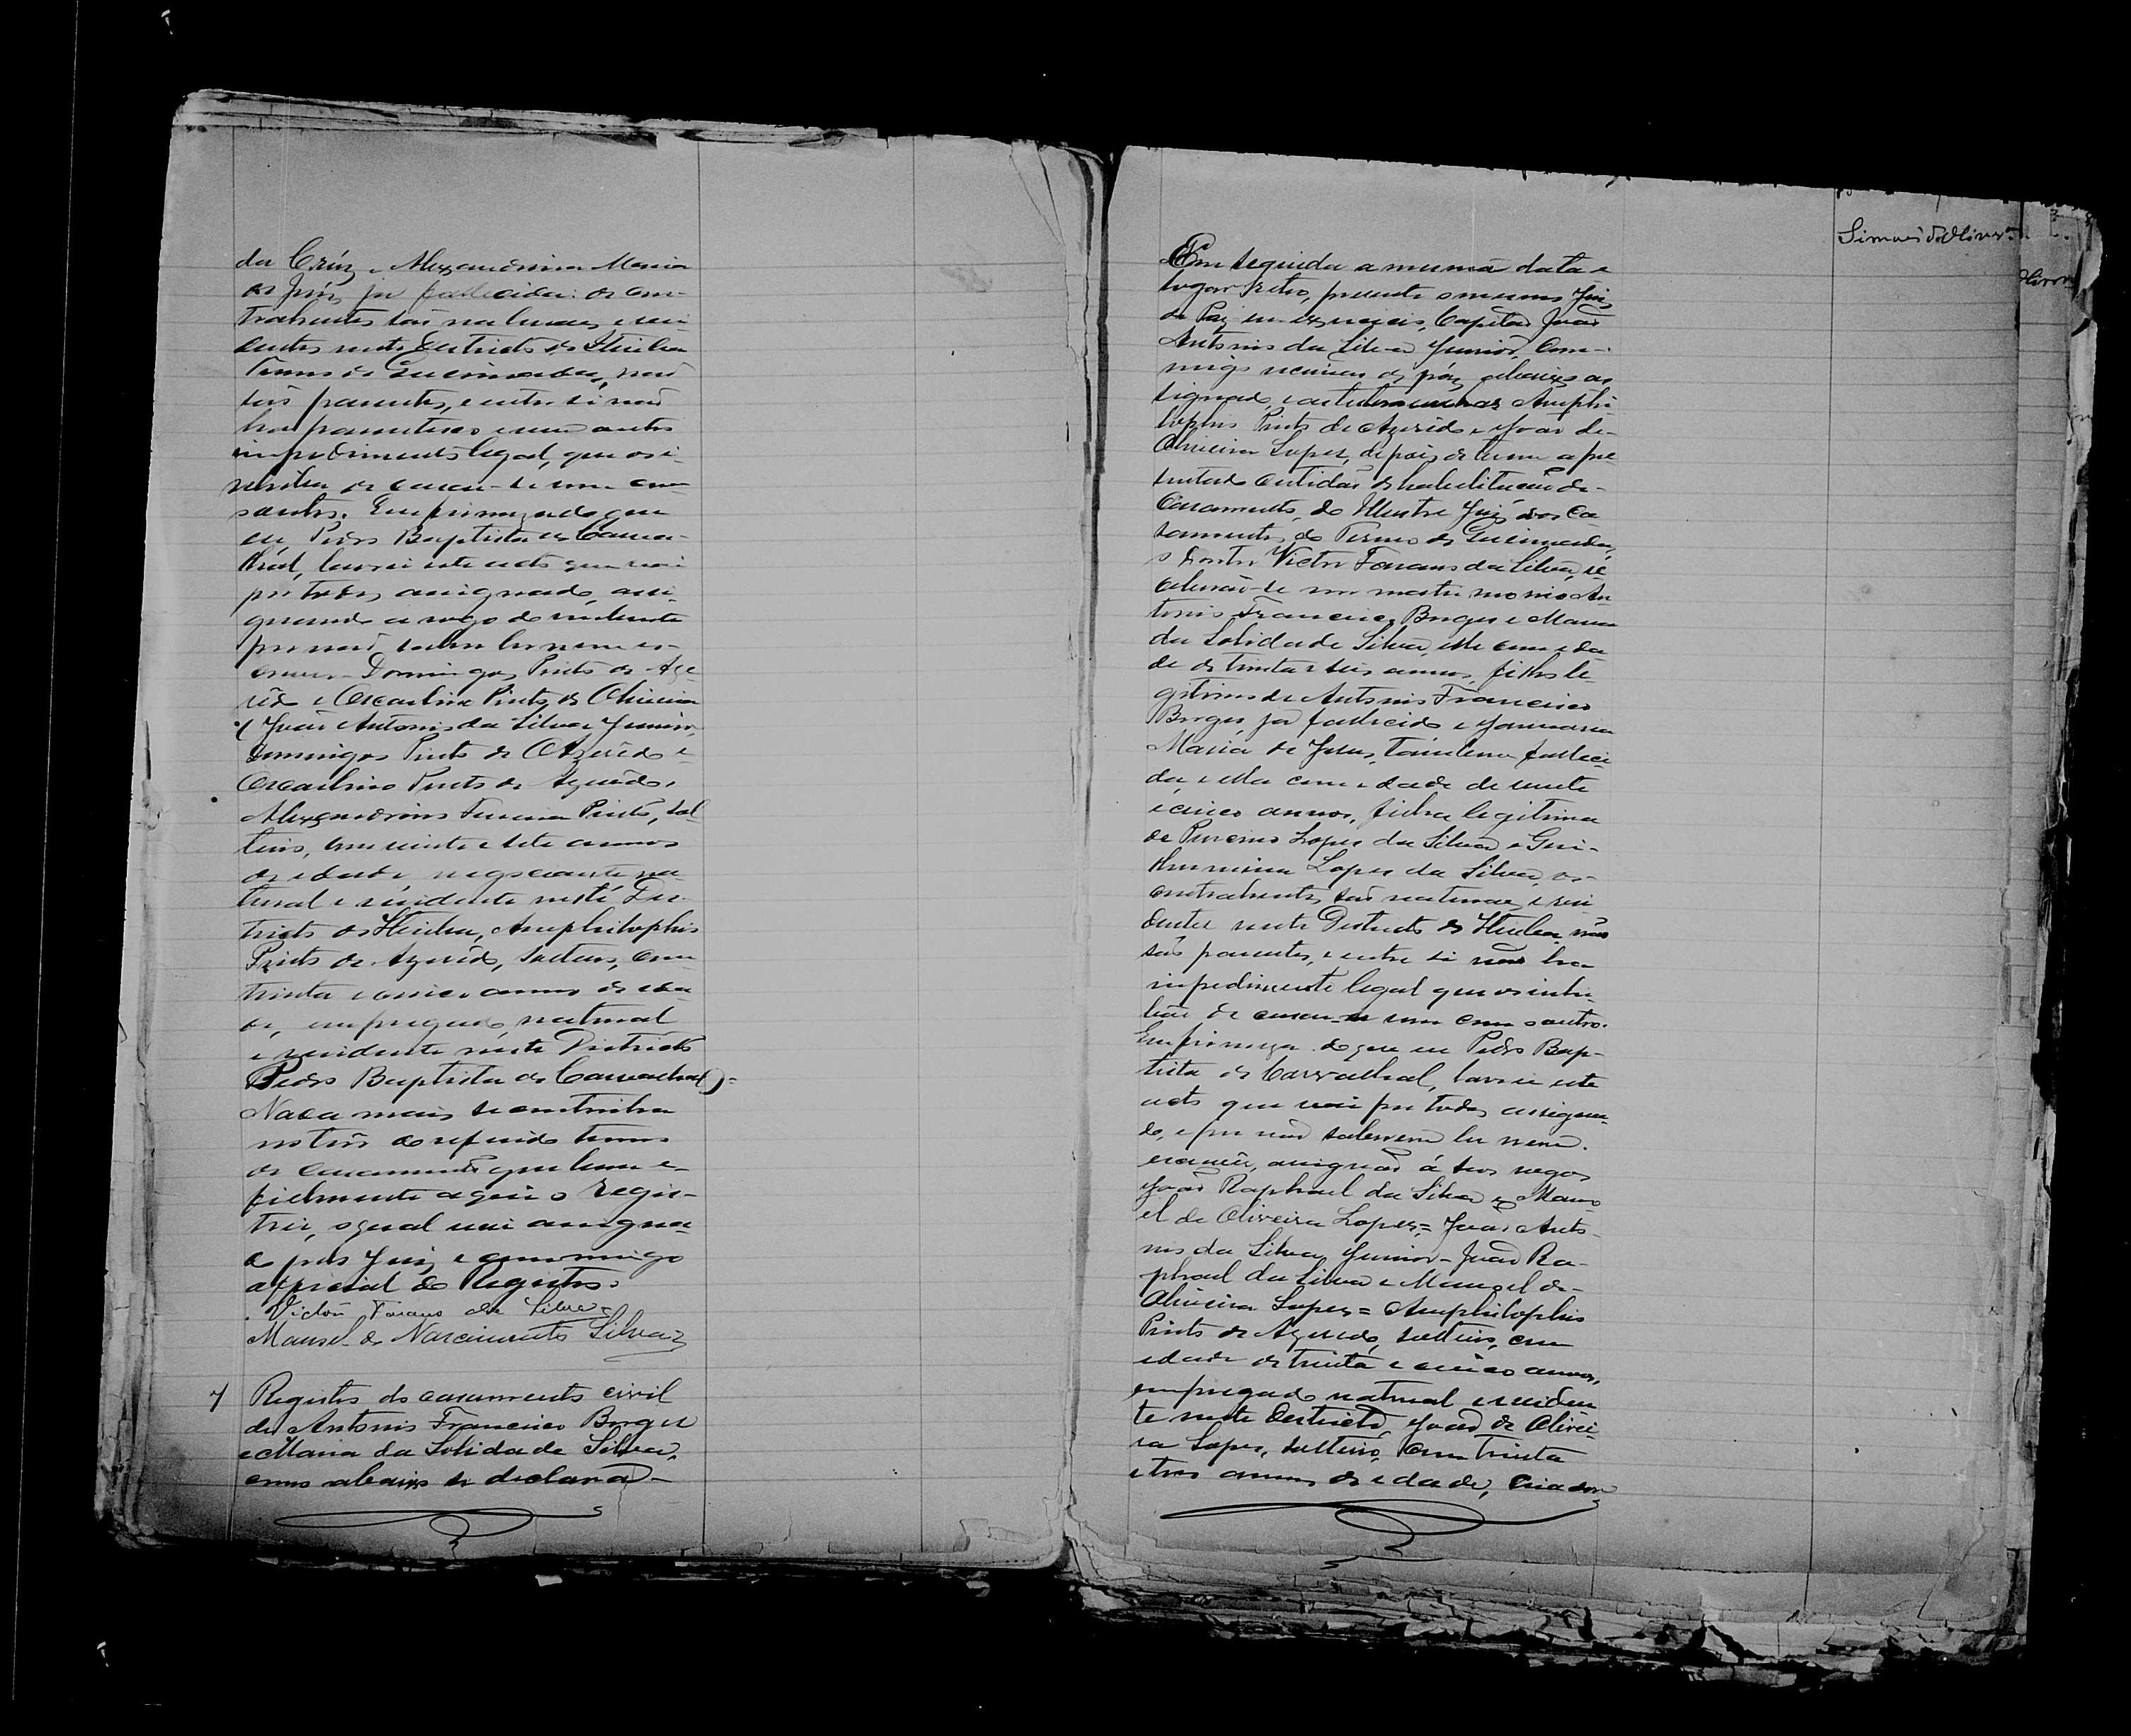 da Crúz e Alexandrina Maria
de Jesús, já fallecida: os con-
trahentes são naturaes e resi-
dentes neste Districto de Itiuba
Termo de Queimadas, não
são parentes, e entre si não
ha parentesco e nem outro
impedimento legal, que os i-
nhiba de casar-se um com
o outro. Em firmeza do que
eu Pedro Baptista de Carva-
lhal, lavrei este acto que vai
por todos assignado, assi-
gnando a rogo do nubente
por não saber ler nem es-
crever Domingos Pinto de Aze-
rêdo e Oscarlina Pinto de Oliveira
João Antonio da Silva Junior,
Domingos Pinto de Azerêdo e
Oscarlino Pinto de Azerêdo,
Alexandrino Pinto, sol-
teiro, com vinte e sete annos
de edade, negociante na-
tural e residente nesté Dis-
tricto de Itiuba, Amphilophio
Pinto de Azerêdo, solteiro, com
trinta e cinco annos de eda-
de, empregado, natural
e residente neste Districto
Pedro Baptista de Carvalhal =
Nada mais se continha
no teôr do referido termo
de casamento que bem e
fielmente aqui o regis-
trei, o qual vai assigna-
do pelo Juiz e commigo
official do Registro.
Victor Farano da Silva
Manoel do Nascimento Silva
7 Registro do casamento civil
de Antonio Francisco Borges
e Maria da Solidade Silva,
como abaixo se declara
Simão d'Oliver.ª
Em seguida a mesma data e
logar retro, presente o mesmo Juiz
de Paz em exercicio, Capitão João
Antonio da Silva Junior, Com-
migo escrivão de páz abaixo as
signado, e as testemunhas Amphi-
lophio Pinto de Azerêdo e João de
Oliveira Lopes, depois de terem apre
sentado certidão de habilitação de
Casamento, do Illustre Juiz dos Ca-
samentos do Termo de Queimadas,
o Doutor Victor Farano da Silva, re
ceberão-se em matrimonio An-
tonio Francisco Borges e Maria
da Solidade Silva, elle com eda
de de trinta e seis annos, filho le-
gitimo de Antonio Francisco
Borges, já fallecido e Januaria
Maria de Jesus, tambem falleci-
da, e ella com edade de vinte
e cinco annos, filha legitima
de Lopes da Silva e Gui-
lhermina Lopes da Silva, os
contrahentes são naturaes e resi
dentes neste Districto de Itiuba não
são parentes, e entre si não ha
impedimento legal que os inhi-
bão de casar-se um com o outro.
Em firmeza do que eu Pedro Bap-
tista de Carvalhal, lavrei este
acto que vai por todos assigna-
do, e por não saberem ler nem
escrever, assignão á seos rogos
João Raphael da Silva e Mano
el de Oliveira Lopes = João Anto-
nio da Silva Junior - João Ra-
phael da Silva e Manoel de
Oliveira Lopes = Amphilophio
Pinto de Azerêdo, solteiro, com
edade de trinta e cinco annos,
empregado natural e residen
te neste Districto, João de Olivei
ra Lopes, solteiro, com trinta
e tres annos de edade, criador